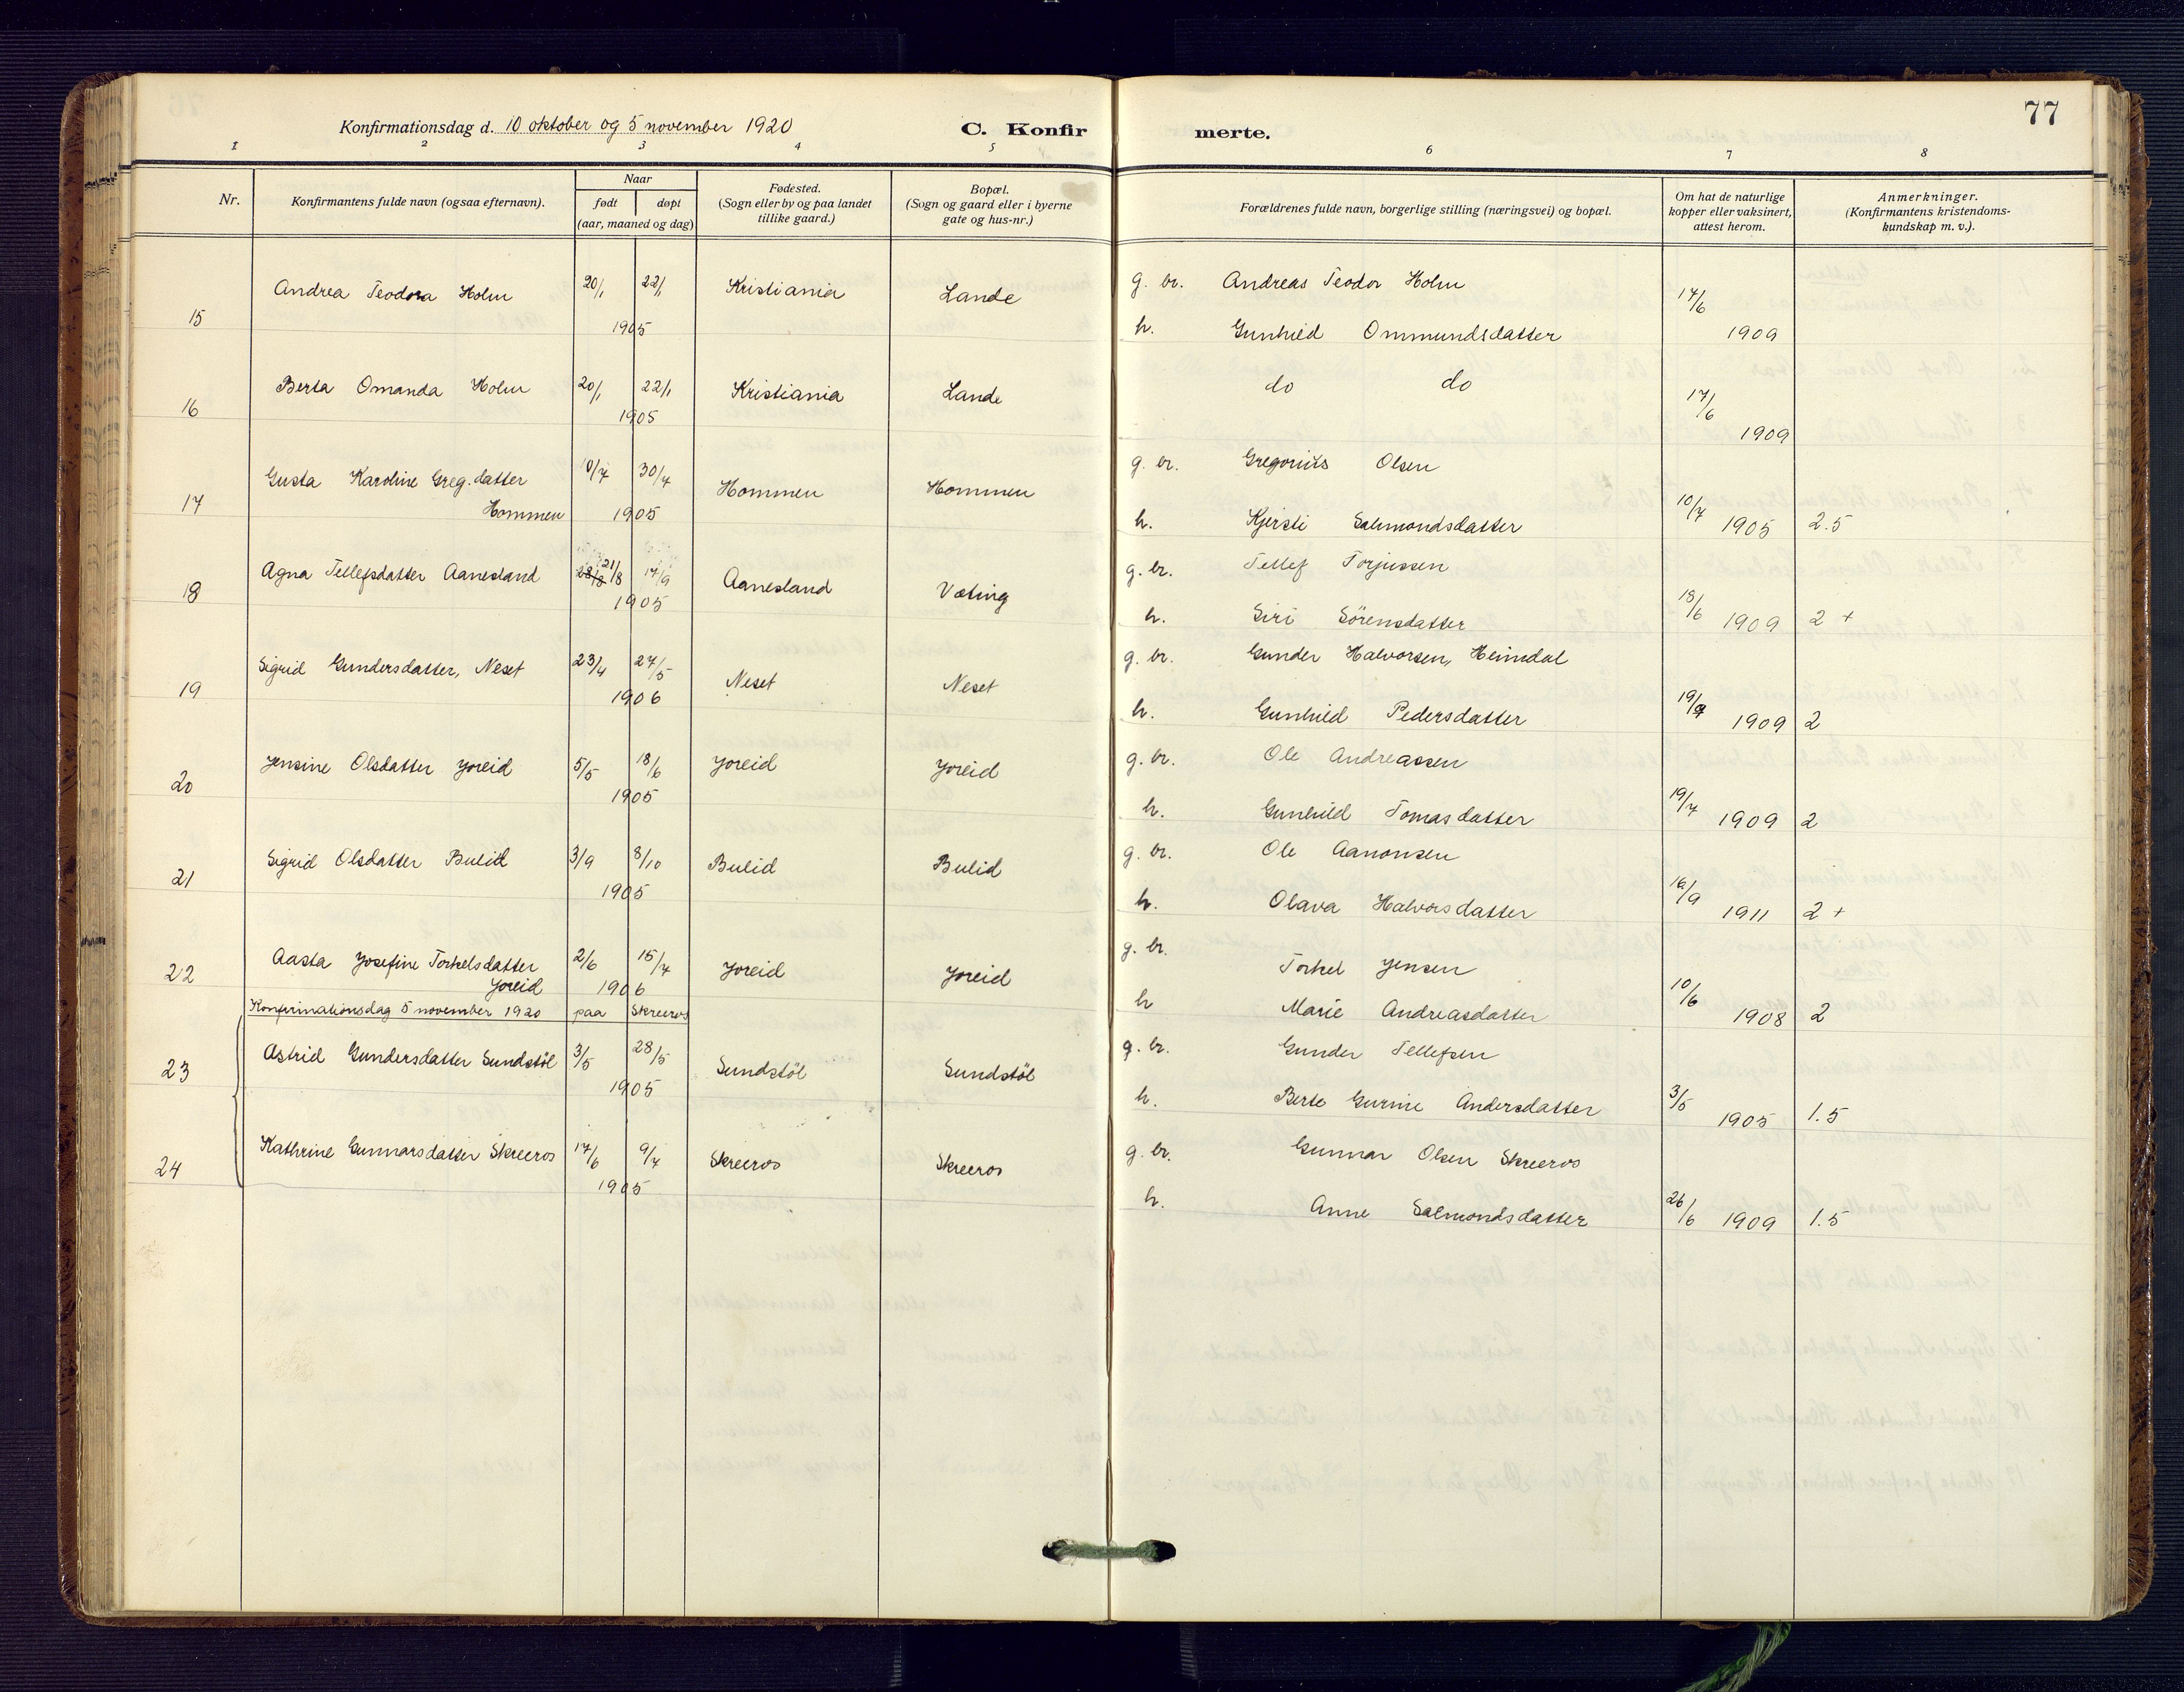 77
Konfirmationsdag d. 10 oktober og 5 november 1920 C. Konfirmerte.
1 2 3 4 5 6 7 8
Nr. Konfirmantens fulde navn (ogsaa efternavn). Naar født døpt (aar, maaned og dag) Fødested. (Sogn eller by og paa landet tillike gaard.) Bopæl. (Sogn og gaard eller i byerne gate og hus-nr.) Forældrenes fulde navn, borgerlige stilling (næringsvei) og bopæl. Om hat de naturlige kopper eller vaksinert, attest herom. Anmerkninger. (Konfirmantens kristendomskundskap m. v.).
15 Andrea Teodora Holm 20/1 22/1 1905 Kristiania Lande g. br. Andreas Teodor Holm
h. Gunhild Ommundsdatter 17/6 1909
16 Berta Omanda Holm 20/1 22/1 1905 Kristiania Lande do do 17/6 1909
17 Gusta Karoline Greg.datter Hommen 10/7 30/7 1905 Hommen Hommen g. br. Gregorius Olsen
h. Kjersti Salmondsdatter 10/7 1905 2.5
18 Agna Tellefsdatter Aanesland 28/8 21/8 17/9 1905 Aanesland Væting g. br. Tellef Torjussen
h. Siri Sörensdatter 18/6 1909 2 +
19 Sigrid Gundersdatter, Neset 23/4 27/5 1906 Neset Neset g. br. Gunder Halvorsen, Heimdal
h. Gunhild Pedersdatter 19/7 1909 2
20 Jensine Olsdatter Joreid 5/5 18/6 1905 Joreid Joreid g. br. Ole Andreassen
h. Gunhild Tomasdatter 19/7 1909 2
21 Sigrid Olsdatter Bulid 3/9 8/10 1905 Bulid Bulid g. br. Ole Aanonsen
h. Olava Halvorsdatter 16/9 1911 2 +
22 Aasta Josefine Torkelsdatter Joreid 2/6 15/7 1906 Joreid Joreid g. br. Torkel Jensen
h Marie Andreasdatter 10/6 1908 2
Konfirmationsdag 5 november 1920 paa Skreeros
23 Astrid Gundersdatter Sundstöl 3/5 28/5 1905 Sundstöl Sundstöl g. br. Gunder Tellefsen
h. Berte Gurine Andersdatter 3/5 1905 1.5
24 Kathrine Gunnarsdatter Skreeros 17/6 9/7 1905 Skreeros Skreeros g. br. Gunnar Olsen Skreeros
h. Anne Salmondsdatter 26/6 1909 1.5